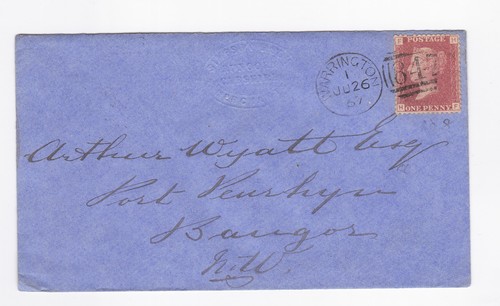 POSTAGE
ONE PENNY
WARRINGTON
1
JU 26
67
847
Arthur Wyatt Esq
Port Penrhyn
Bangor
N.W.